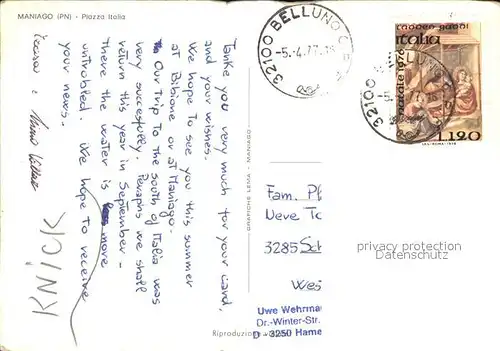 MANIAGO (PN) - Piazza Italia
Tanke you very much for your card,
and your wishes.
We hope to see you this summer
at Bibione or at Maniago.
Our Trip to the south of Italia was
very succesfully. Perhaps we shall
return this year in September.
There the water is more
untrobled. We hope to receive
your news.
KNICK
GRAFICHE LEMA - MANIAGO
Riproduzione
32100 BELLUNO C
-5.-4.77.-18
32100 BELLUNO
taddeo gaddi
italia
natale 1976
L120
I.P.S.-ROMA-1976
Fam.
Neve
3285
Wes
privacy protection
Datenschutz
Uwe Wehrma
Dr.-Winter-Str.
D - 3250 Hame